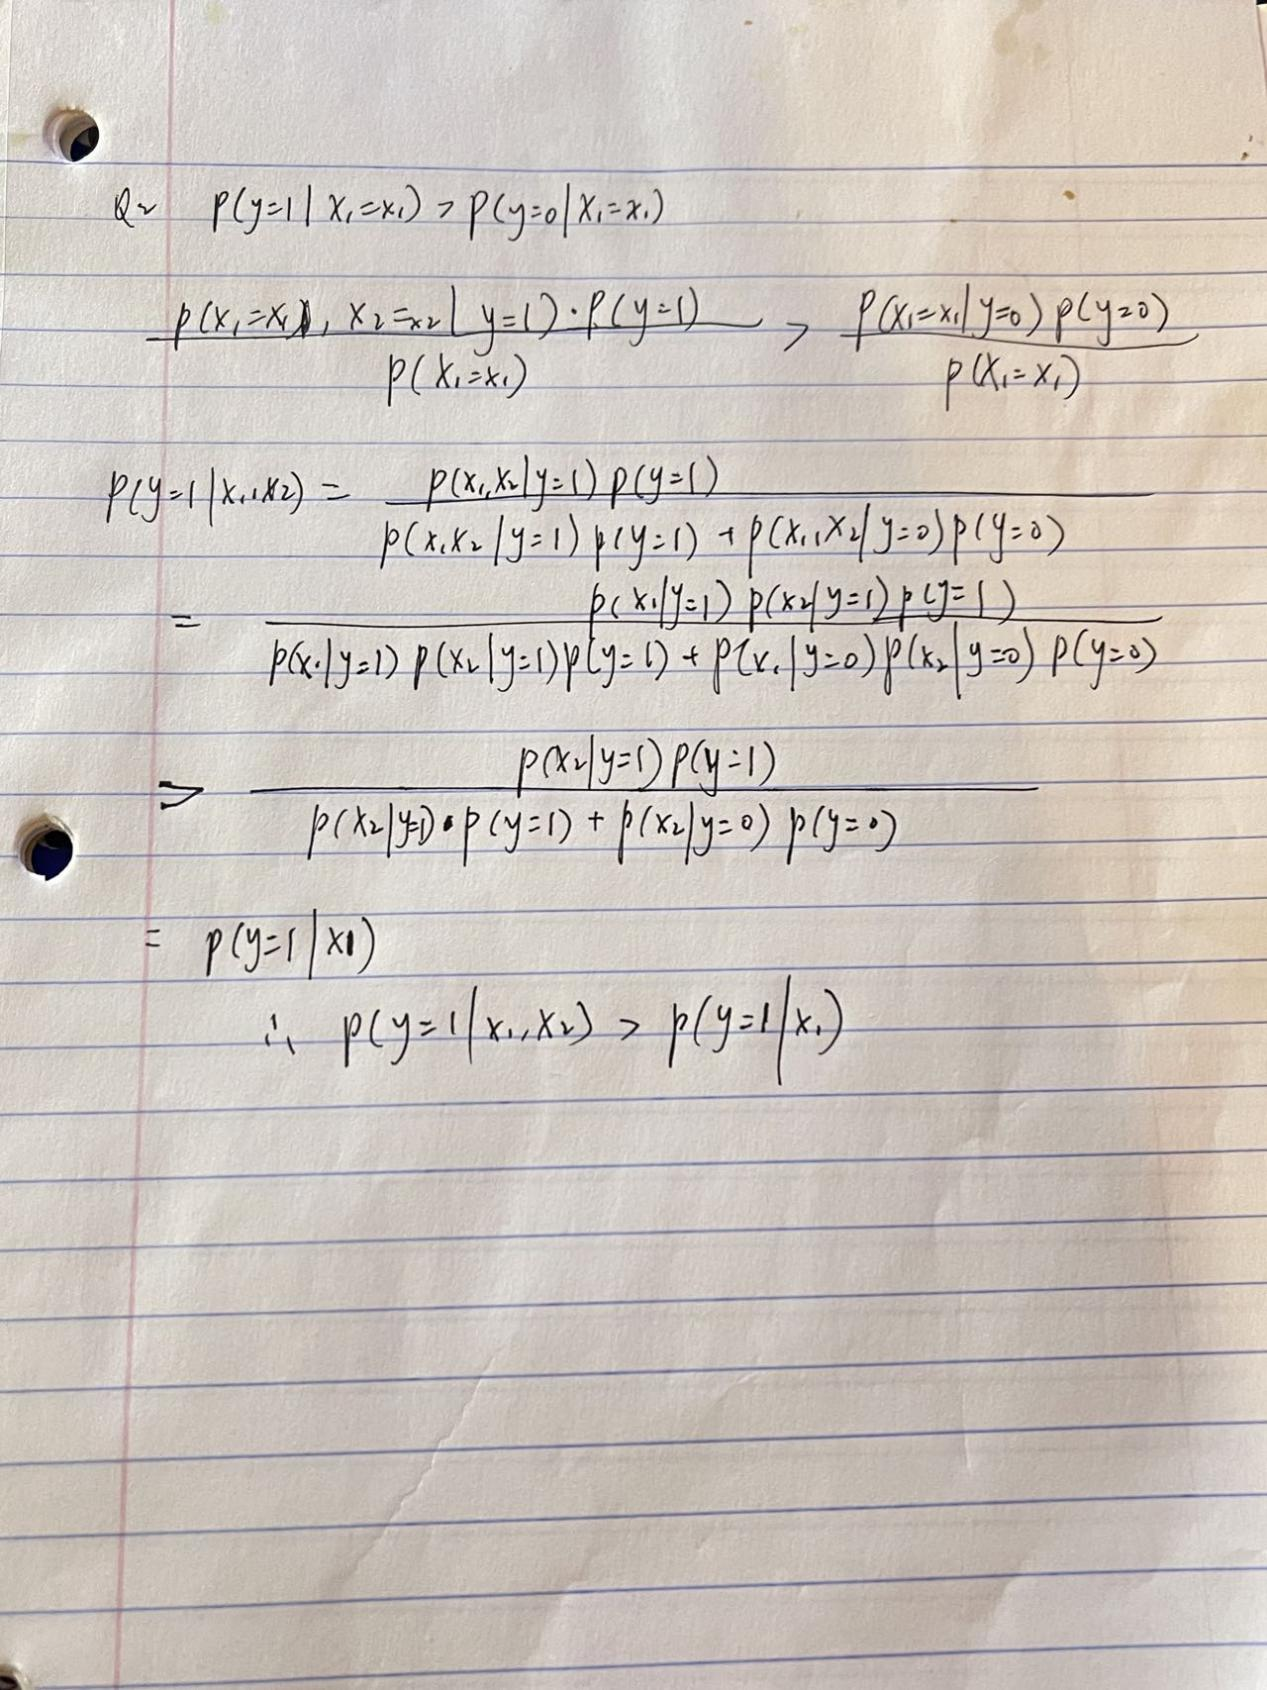 Q2 P(y=1 | X₁=x₁) > P(y=0 | X₁=x₁)
P(X₁=x₁), X₂=x₂ | y=1) · P(y=1) / P(X₁=x₁) > P(X₁=x₁ | y=0) P(y=0) / P(X₁=x₁)
P(y=1 | x₁, x₂) = P(x₁, x₂ | y=1) P(y=1) / P(x₁ x₂ | y=1) P(y=1) + P(x₁, x₂ | y=0) P(y=0)
= P(x₁ | y=1) P(x₂ | y=1) P(y=1) / P(x₁ | y=1) P(x₂ | y=1) P(y=1) + P(x₁ | y=0) P(x₂ | y=0) P(y=0)
> P(x₂ | y=1) P(y=1) / P(x₂ | y=1) · P(y=1) + P(x₂ | y=0) P(y=0)
= P(y=1 | x1)
∴ P(y=1 | x₁, x₂) > P(y=1 | x₁)